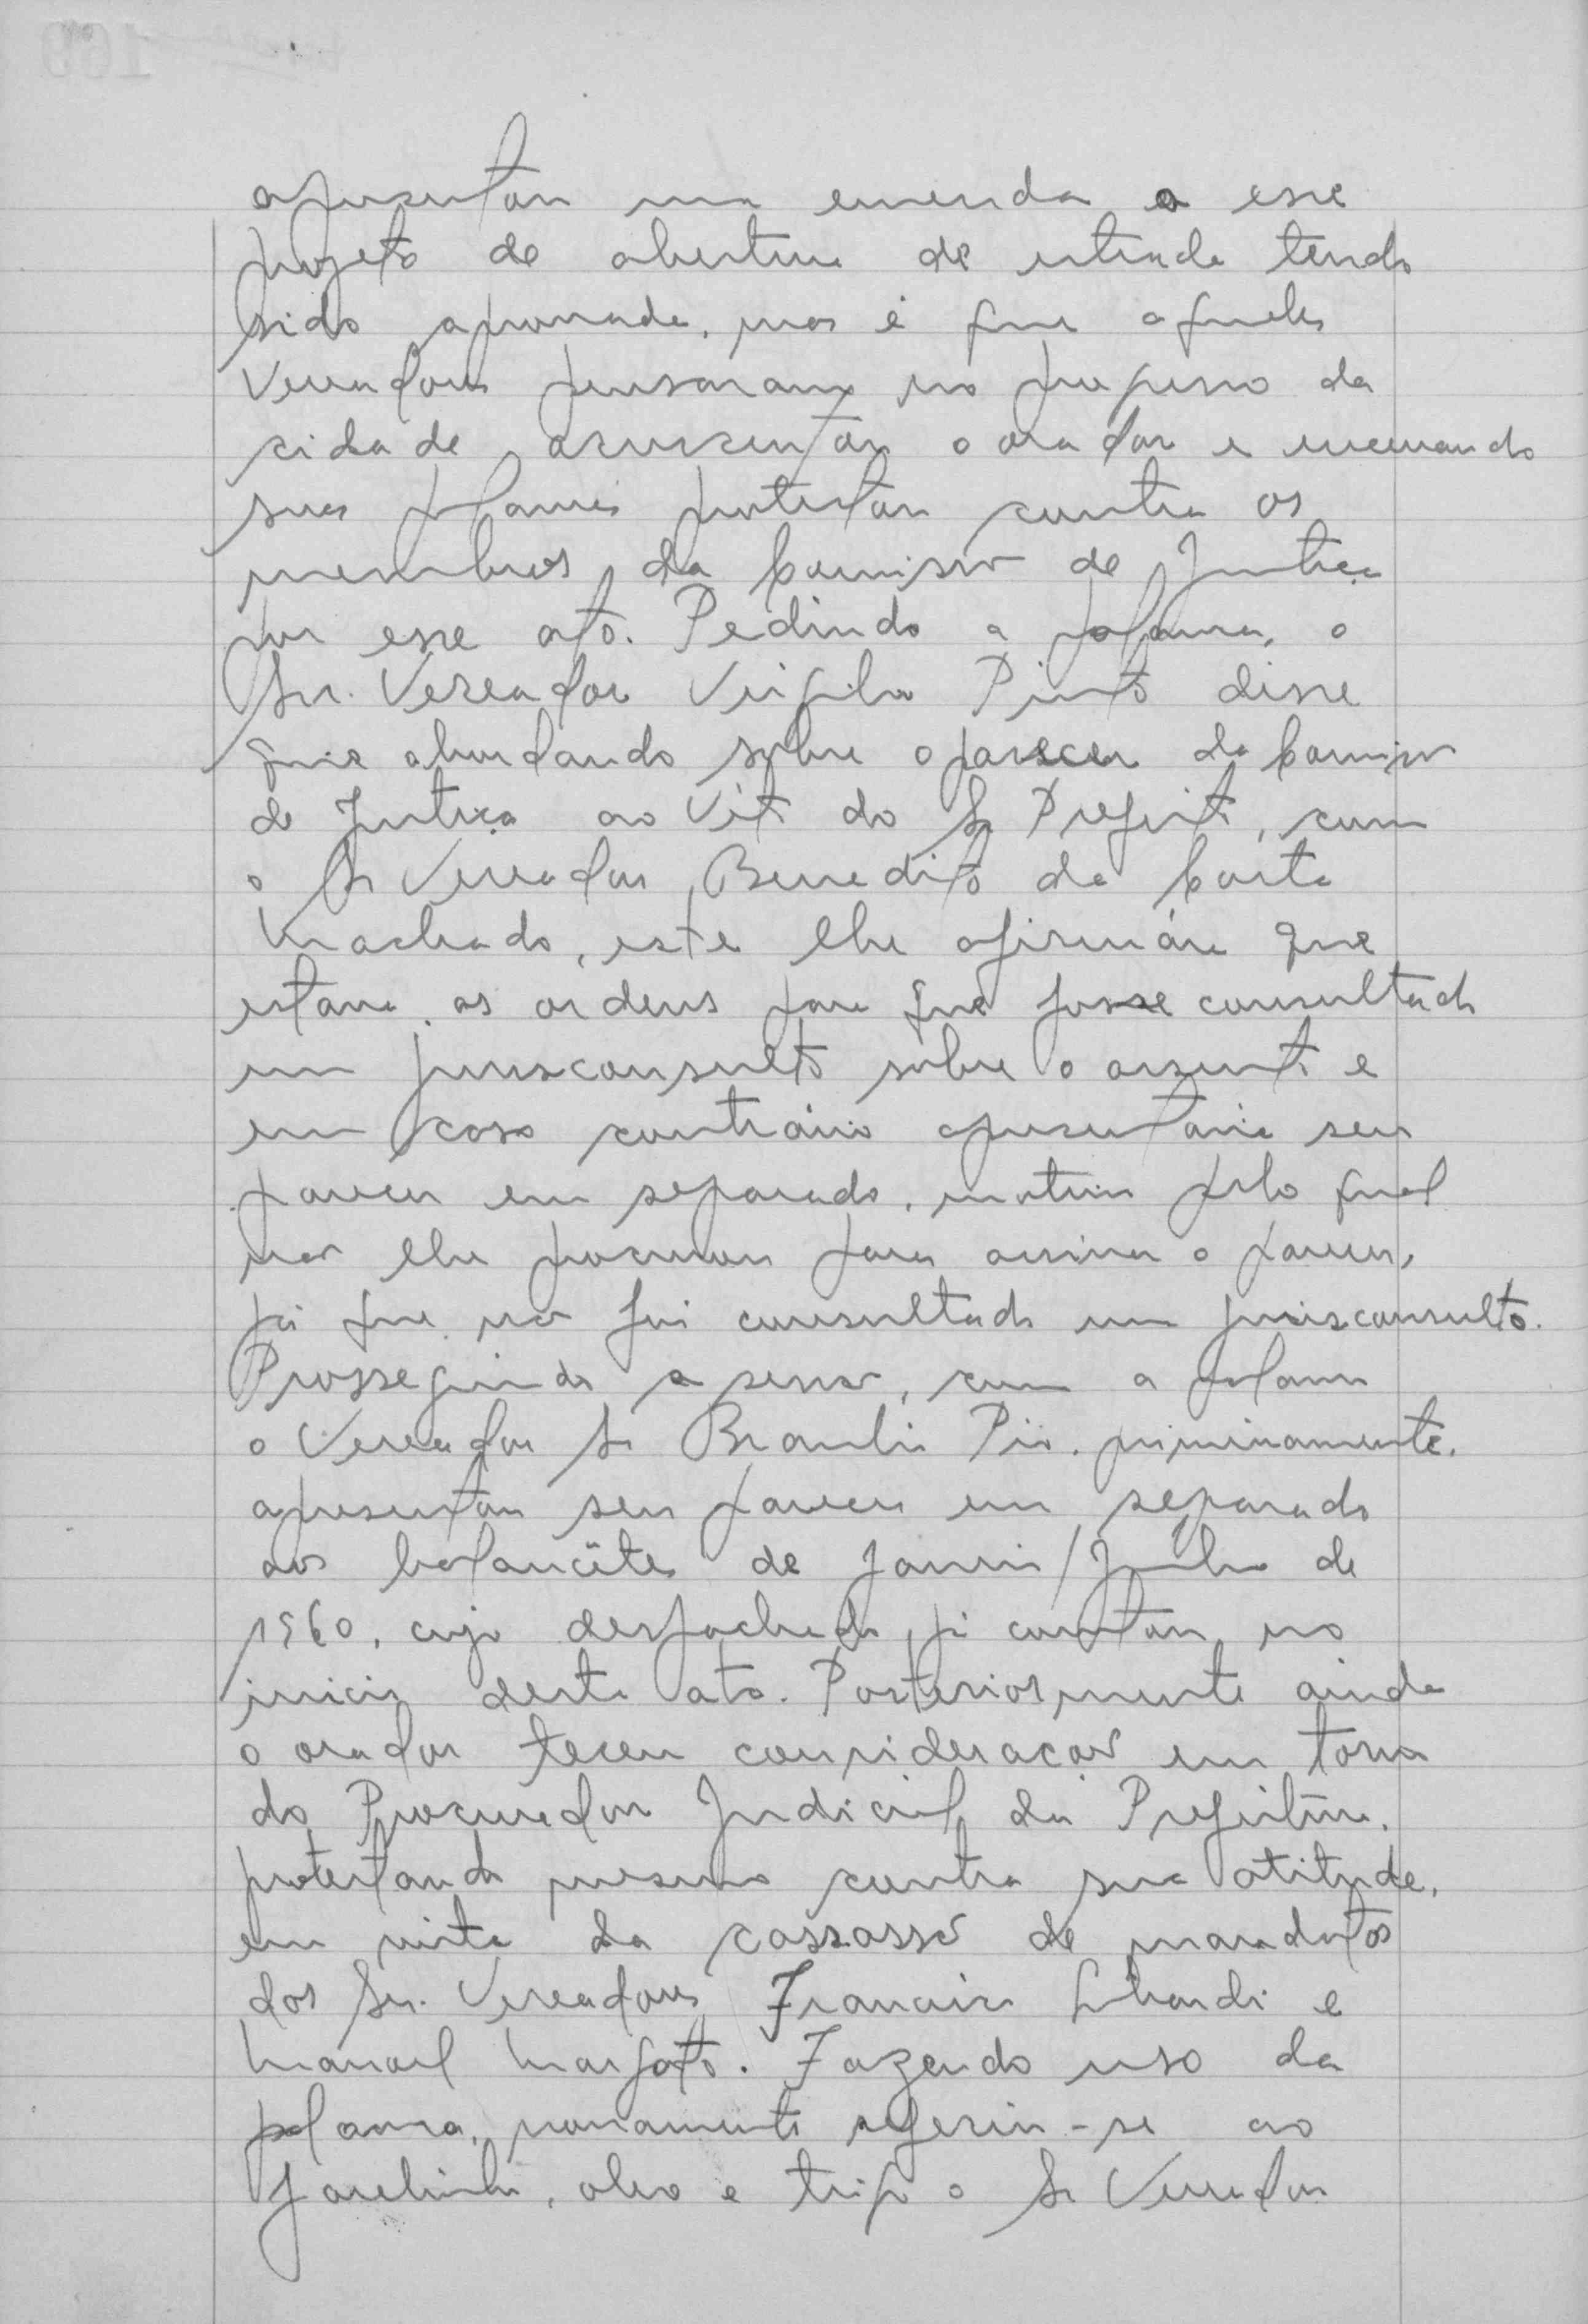 apresentou uma emenda a esse
projeto de abertura de estrada tendo
sido aprovada, mas é que aqueles
Vereadores pensaram no progresso da
cidade acrescentou o orador e encerrando
suas palavras protestou contra os
membros da Comissão de Justiça
por esse ato. Pedindo a palavra, o
Snr. Vereador Virgilio Pinto disse
que abordando sobre o parecer da Comissão
de Justiça ao Véto do Sr Prefeito, com
o Sr Vereador Benedito da Costa
Machado, este lhe afirmára que
estava as ordens para que fosse consultado
um jurisconsulto sobre o assunto e
em caso contrário apresentaria seu
parecer em separado, motivo pelo qual
não lhe procurou para assinar o parecer,
já que não foi consultado um jurisconsulto.
Prosseguindo a sessão, com a palavra
o Vereador Sr Braulio Pio. primeiramente.
apresentou seu parecer em separado
aos balancêtes de Janeiro/Junho de
1960, cujo despachado já constou no
inicio desta ata. Posteriormente ainda
o orador teceu consideração em torno
do Procurador Judicial da Prefeitura.
protestando mesmo contra sua atitude,
em vista da cassassão de mandatos
dos Srs. Vereadores Francisco e
Manoel Marfoto. Fazendo uso da
palavra, novamente referiu-se ao
Jarelinho, oleo e trigo o Sr Vereador